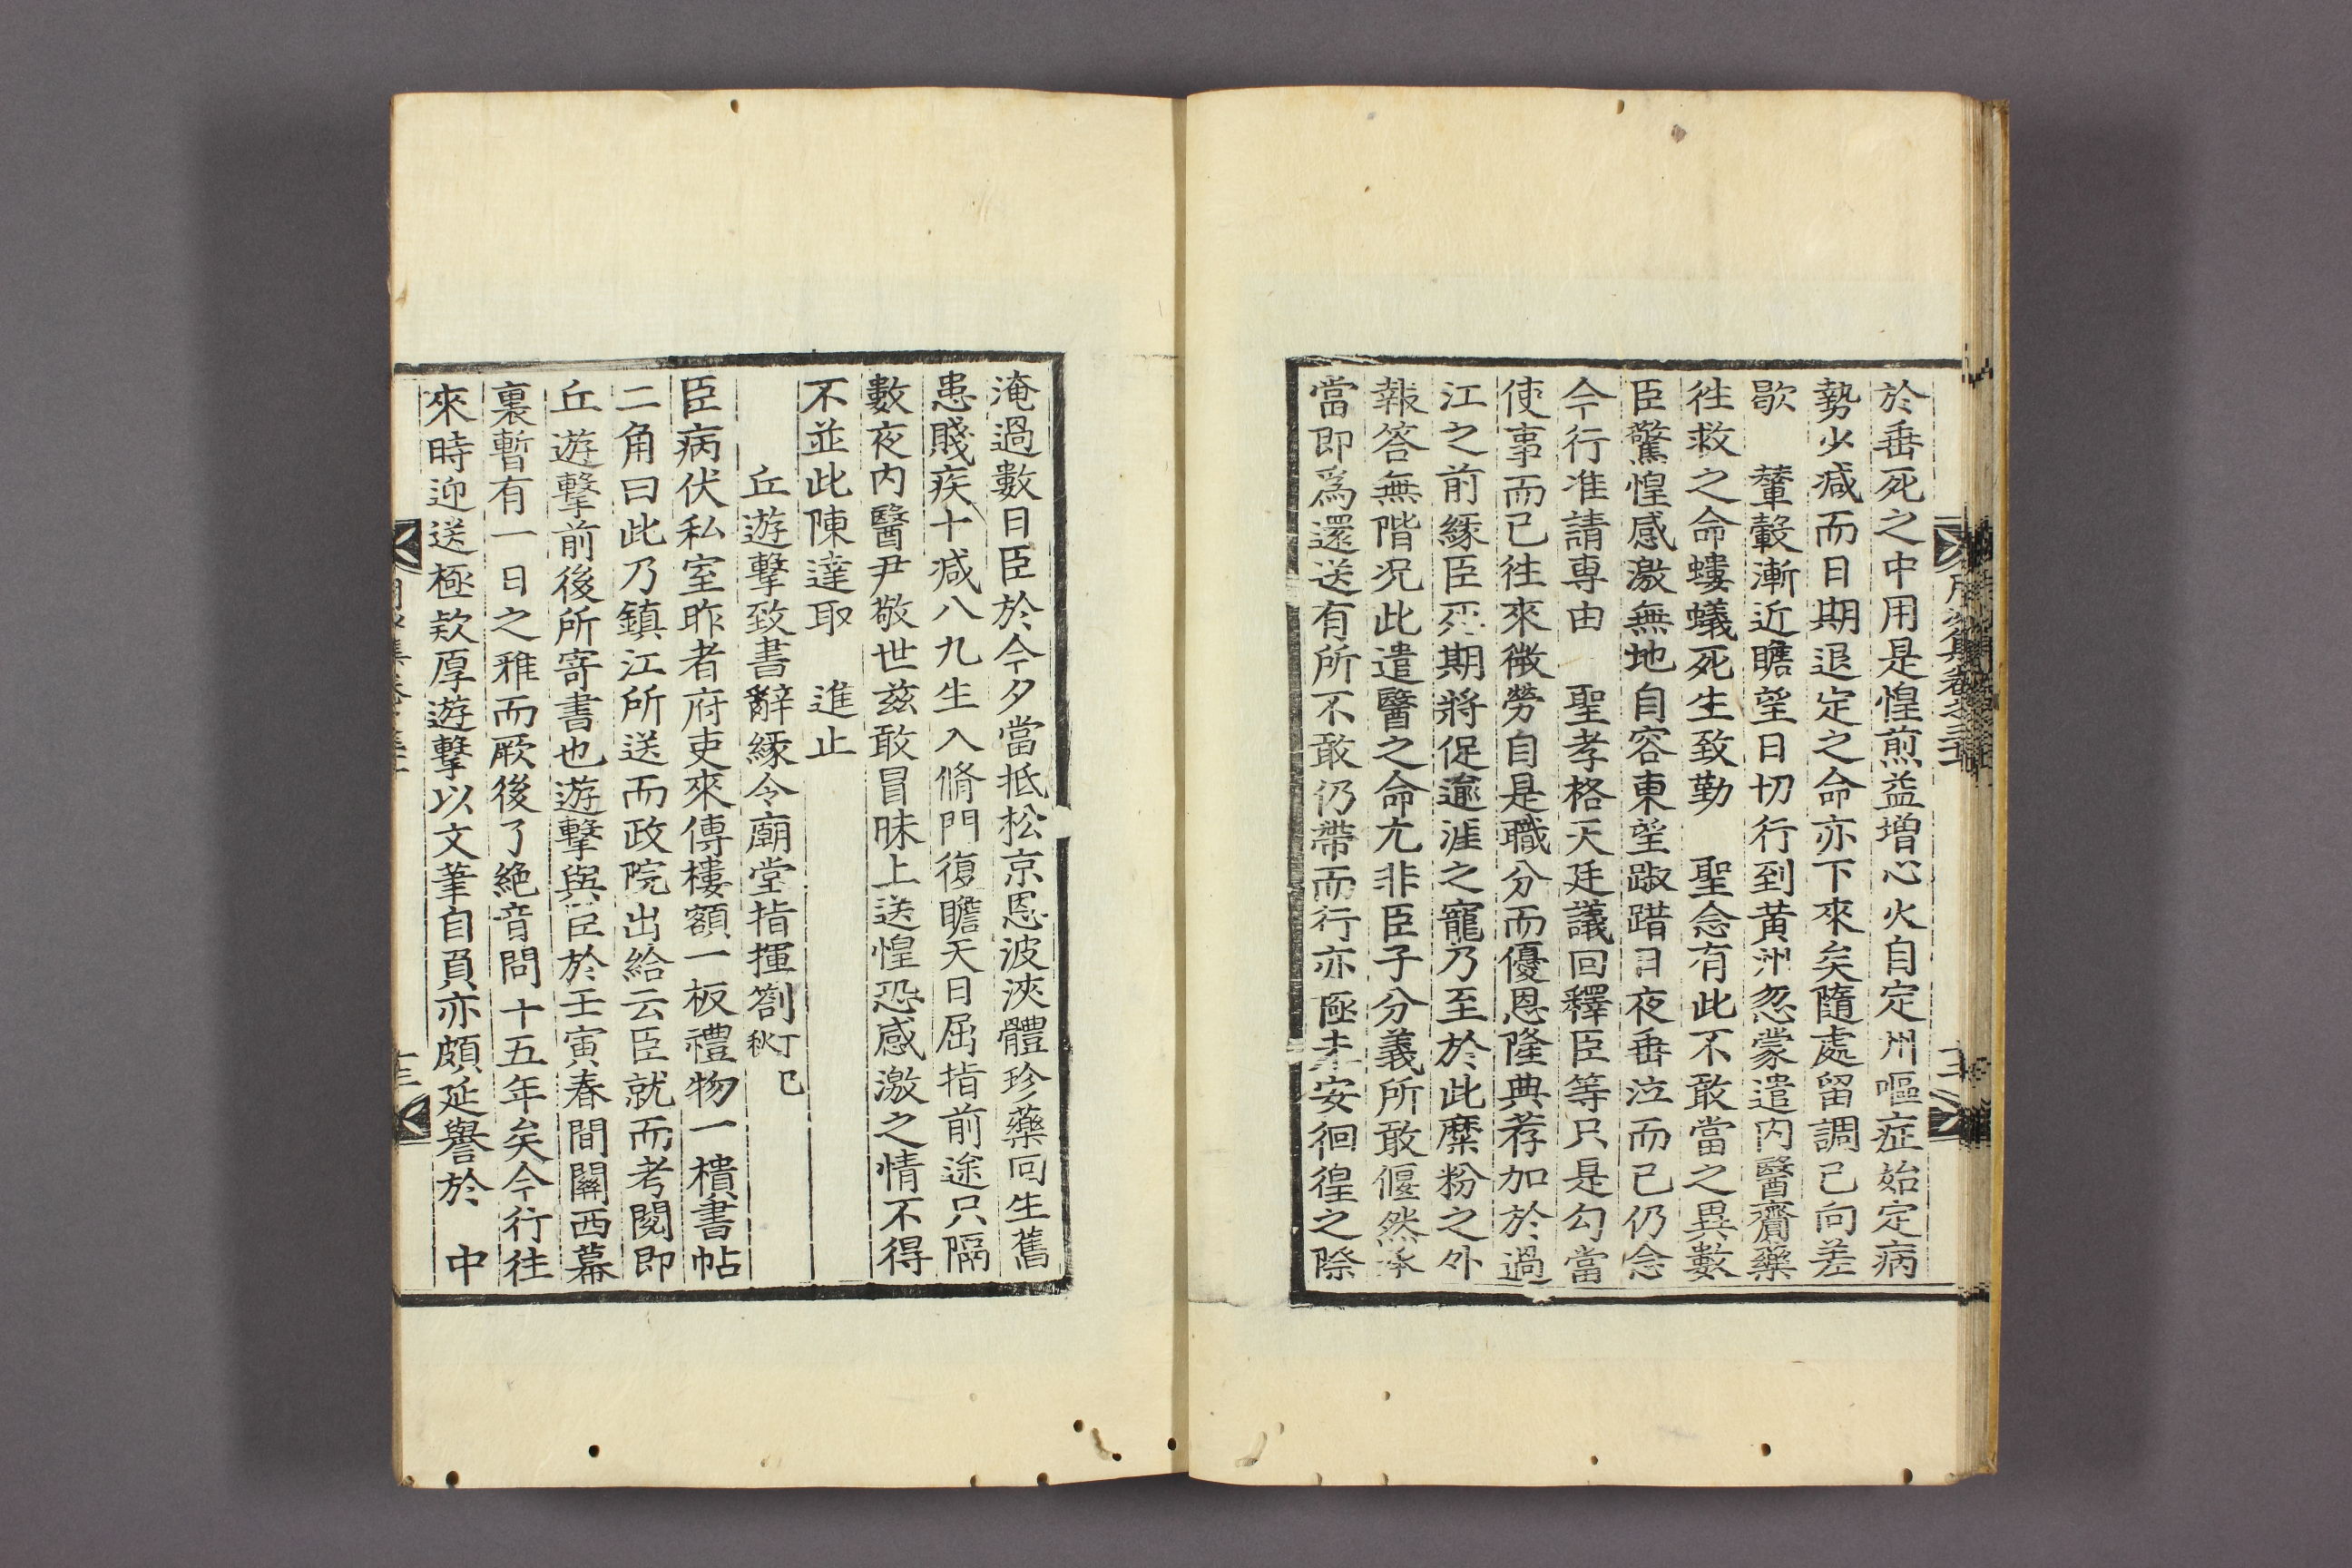 於垂死之中用是惶煎益增心火自定州嘔症始定病
勢少减而日期退定之命亦下來矣隨處留調已向差
歇　輦轂漸近瞻望日切行到黃州忽蒙遣內醫齎藥
徃救之命螻蟻死生致勤　聖念有此不敢當之異數
臣驚惶感激無地自容東望踧踖日夜垂泣而已仍念
今行准請專由　聖孝格天廷議回釋臣等只是勾當
使事而已徃來微勞自是職分而優恩隆典荐加於過
江之前緣臣死期將促逾涯之寵乃至於此糜粉之外
報答無階况此遣醫之命尤非臣子分義所敢偃然承
當即爲還送有所不敢仍帶而行亦極未安徊徨之際
淹過數日臣於今夕當抵松京恩波浹體珍藥回生舊
患賤疾十减八九生入脩門復瞻天日屈指前途只隔
數夜內醫尹敬世玆敢冒昧上送惶恐感激之情不得
不並此陳達取　進止
丘遊擊致書辭緣令廟堂指揮劄丁巳秋
臣病伏私室昨者府吏來傳樓額一板禮物一樻書帖
二角曰此乃鎮江所送而政院出給云臣就而考閱即
丘遊擊前後所寄書也遊擊與臣於壬寅春間關西幕
裏暫有一日之雅而厥後了絶音問十五年矣今行徃
來時迎送極欵厚遊擊以文筆自負亦頗延譽於　中